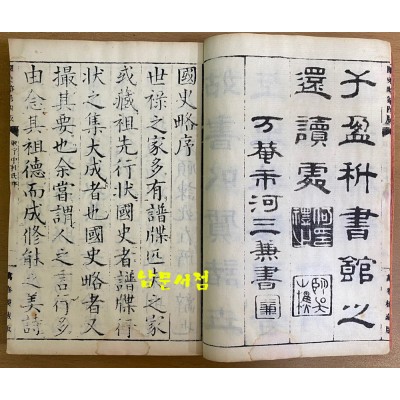 于盈科書館之
還讀處
万菴市河三兼書
三兼
國史略序
世祿之家多有譜牒匹士之家
或藏祖先行狀國史者譜牒行
狀之集大成者也國史略者又
撮其要也余嘗謂人之立行多
由念其祖德而成脩之美詩
남문서점